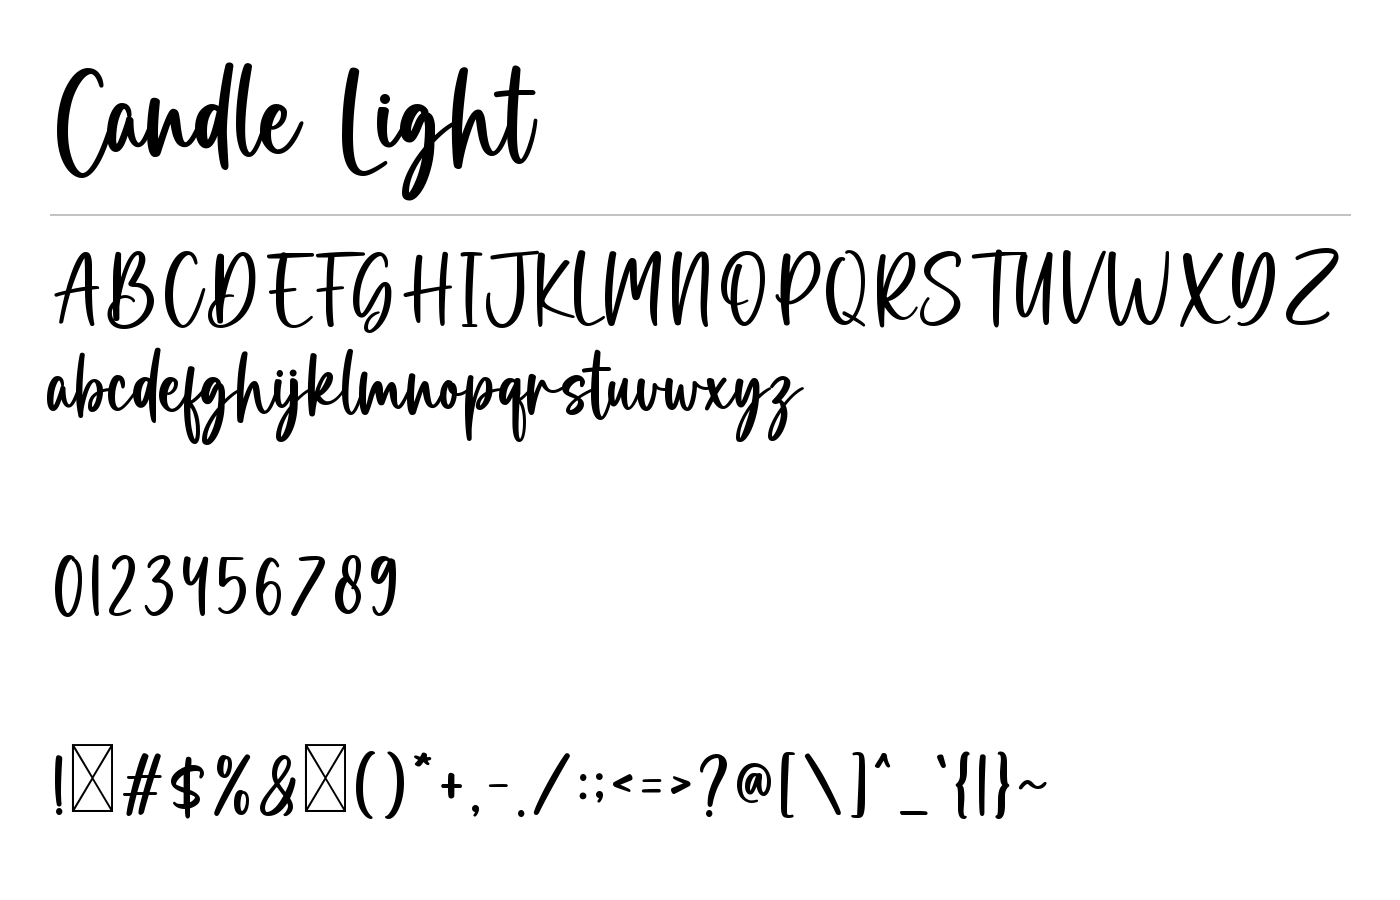 Candle Light
ABCDEFGHIJKLMNOPQRSTUVWXYZ
abcdefghijklmnopqrstuvwxyz
0123456789
!#$%&()*+,-./:;<=>?@[\]^_`{|}~